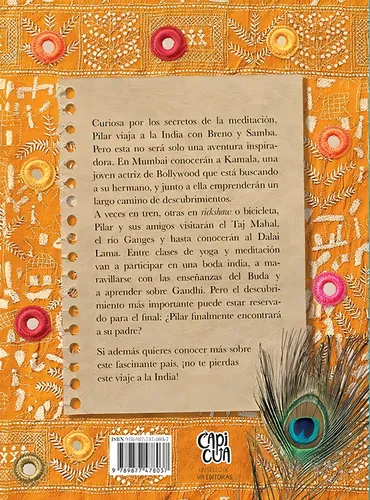 Curiosa por los secretos de la meditación,
Pilar viaja a la India con Breno y Samba.
Pero esta no será solo una aventura inspira-
dora. En Mumbai conocerán a Kamala, una
joven actriz de Bollywood que está buscando
a su hermano, y junto a ella emprenderán un
largo camino de descubrimientos.
A veces en tren, otras en rickshaw o bicicleta,
Pilar y sus amigos visitarán el Taj Mahal,
el río Ganges y hasta conocerán al Dalai
Lama. Entre clases de yoga y meditación
van a participar en una boda india, a ma-
ravillarse con las enseñanzas del Buda y
a aprender sobre Gandhi. Pero el descubri-
miento más importante puede estar reserva-
do para el final: ¿Pilar finalmente encontrará
a su padre?
Si además quieres conocer más sobre
este fascinante país, ¡no te pierdas
este viaje a la India!
ISBN 978-987-747-803-7
9 789877 478037
CAPI
CÚA
UN SELLO DE
VR EDITORAS